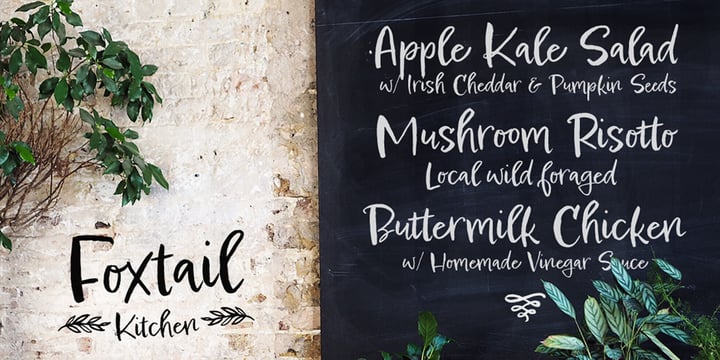 Foxtail
Kitchen
Apple Kale Salad
w/ Irish Cheddar & Pumpkin Seeds
Mushroom Risotto
Local wild foraged
Buttermilk Chicken
w/ Homemade Vinegar Sauce